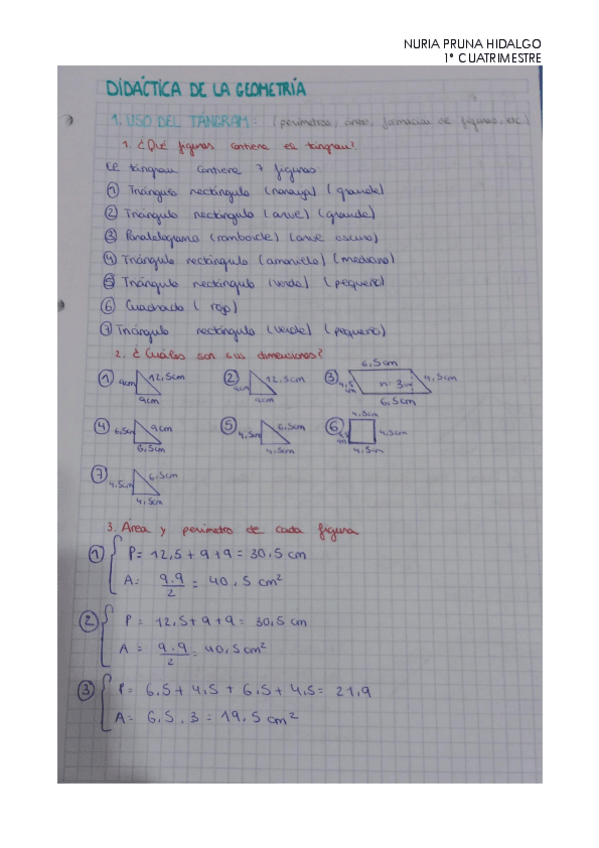 NURIA PRUNA HIDALGO
1º CUATRIMESTRE
DIDÁCTICA DE LA GEOMETRÍA
1. USO DEL TANGRAM: (perímetros, áreas, formación de figuras, etc)
1. ¿Qué figuras contiene el tangram?
El tangram contiene 7 figuras
① Triángulo rectángulo (naranja) (grande)
② Triángulo rectángulo (azul) (grande)
③ Paralelogramo (romboide) (azul oscuro)
④ Triángulo rectángulo (amarillo) (mediano)
⑤ Triángulo rectángulo (verde) (pequeño)
⑥ Cuadrado (rojo)
⑦ Triángulo rectángulo (verde) (pequeño)
2. ¿Cuáles son sus dimensiones?
① 9cm 12,5cm 9cm
② 9cm 12,5cm 9cm
③ 6,5cm 4,5cm h=3cm 4,5cm 6,5cm
④ 6,5cm 9cm 6,5cm
⑤ 4,5cm 6,5cm 4,5cm
⑥ 4,5cm 4,5cm 4,5cm 4,5cm
⑦ 4,5cm 6,5cm 4,5cm
3. Área y perímetro de cada figura
① P= 12,5 + 9 + 9 = 30,5 cm
A= 9.9/2 = 40,5 cm²
② P= 12,5 + 9 + 9 = 30,5 cm
A= 9.9/2 = 40,5 cm²
③ P= 6,5 + 4,5 + 6,5 + 4,5 = 21,9
A= 6,5 . 3 = 19,5 cm²